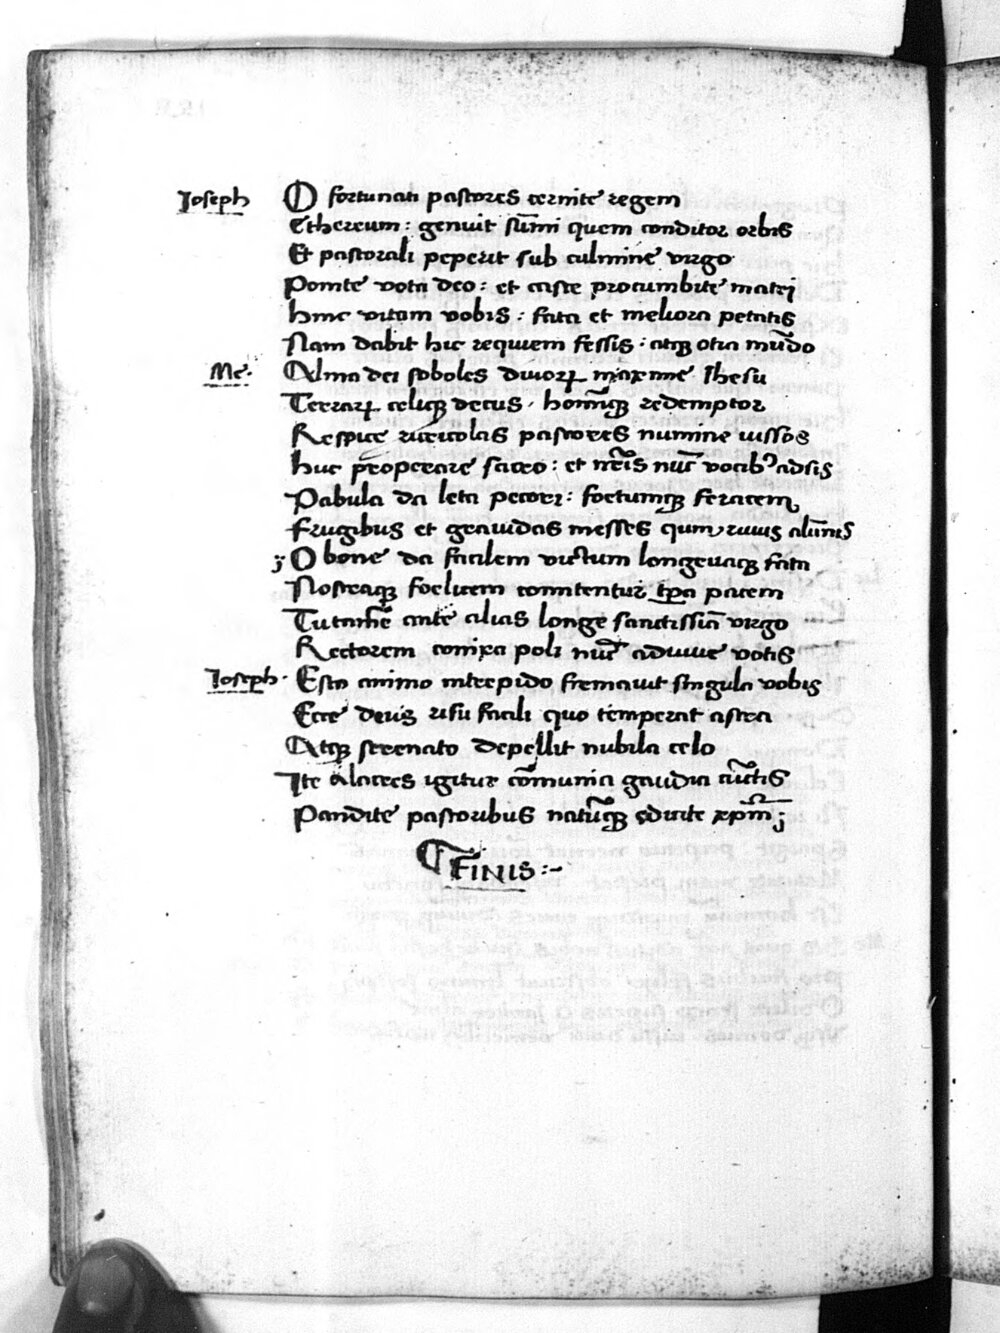 Joseph O fortunati pastores cernite regem
Ethereum: genuit sūmi quem conditor orbis
Et pastorali peperit sub culmine virgo
Ponite vota deo: et caste procumbite matri
hinc vitam vobis: fata et meliora petatis
Nam dabit hic requiem fessis: atqꝫ otia mūdo
Me. Alma dei soboles diuoꝝ maxime Jhesu
Terraꝝ celiqꝫ decus, hoīmqꝫ redemptor
Respice ruricolas pastores numine iussos
huc properare sacro: et nr̄is nūc vocibꝰ adsis
Pabula da leta pecori: foetumqꝫ feracem
Frugibus et grauidas messes alūnis
O bone da facilem victum longeuaqꝫ fata
Nostraqꝫ foeliciter pacem
Tu tamē ante alias longe sanctissīa virgo
Rectorem conixa poli nūc adiuue votis
Joseph. Esto animo intrepido fremauit singula vobis
Ecce deus risu facili quo temperat astra
Atqꝫ serenato depellit nubila celo
Ite alacres igitur cōmunia gaudia cūctis
Pandite pastoribus natūqꝫ edicite xp̄m;
FINIS:-